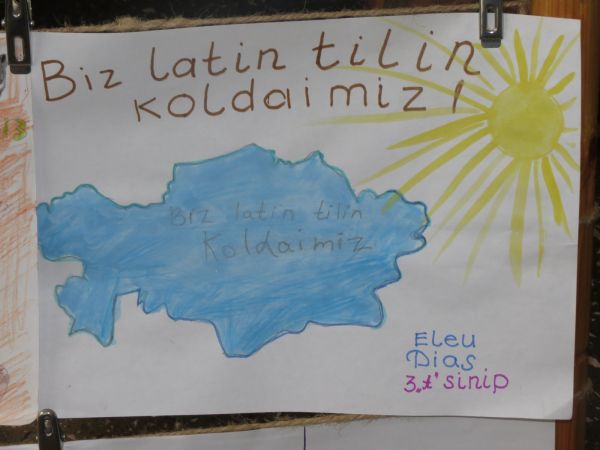 Biz latin tilin
koldaimiz!
Biz latin tilin
Koldaimiz
Eleu
Dias
3„t" sinip